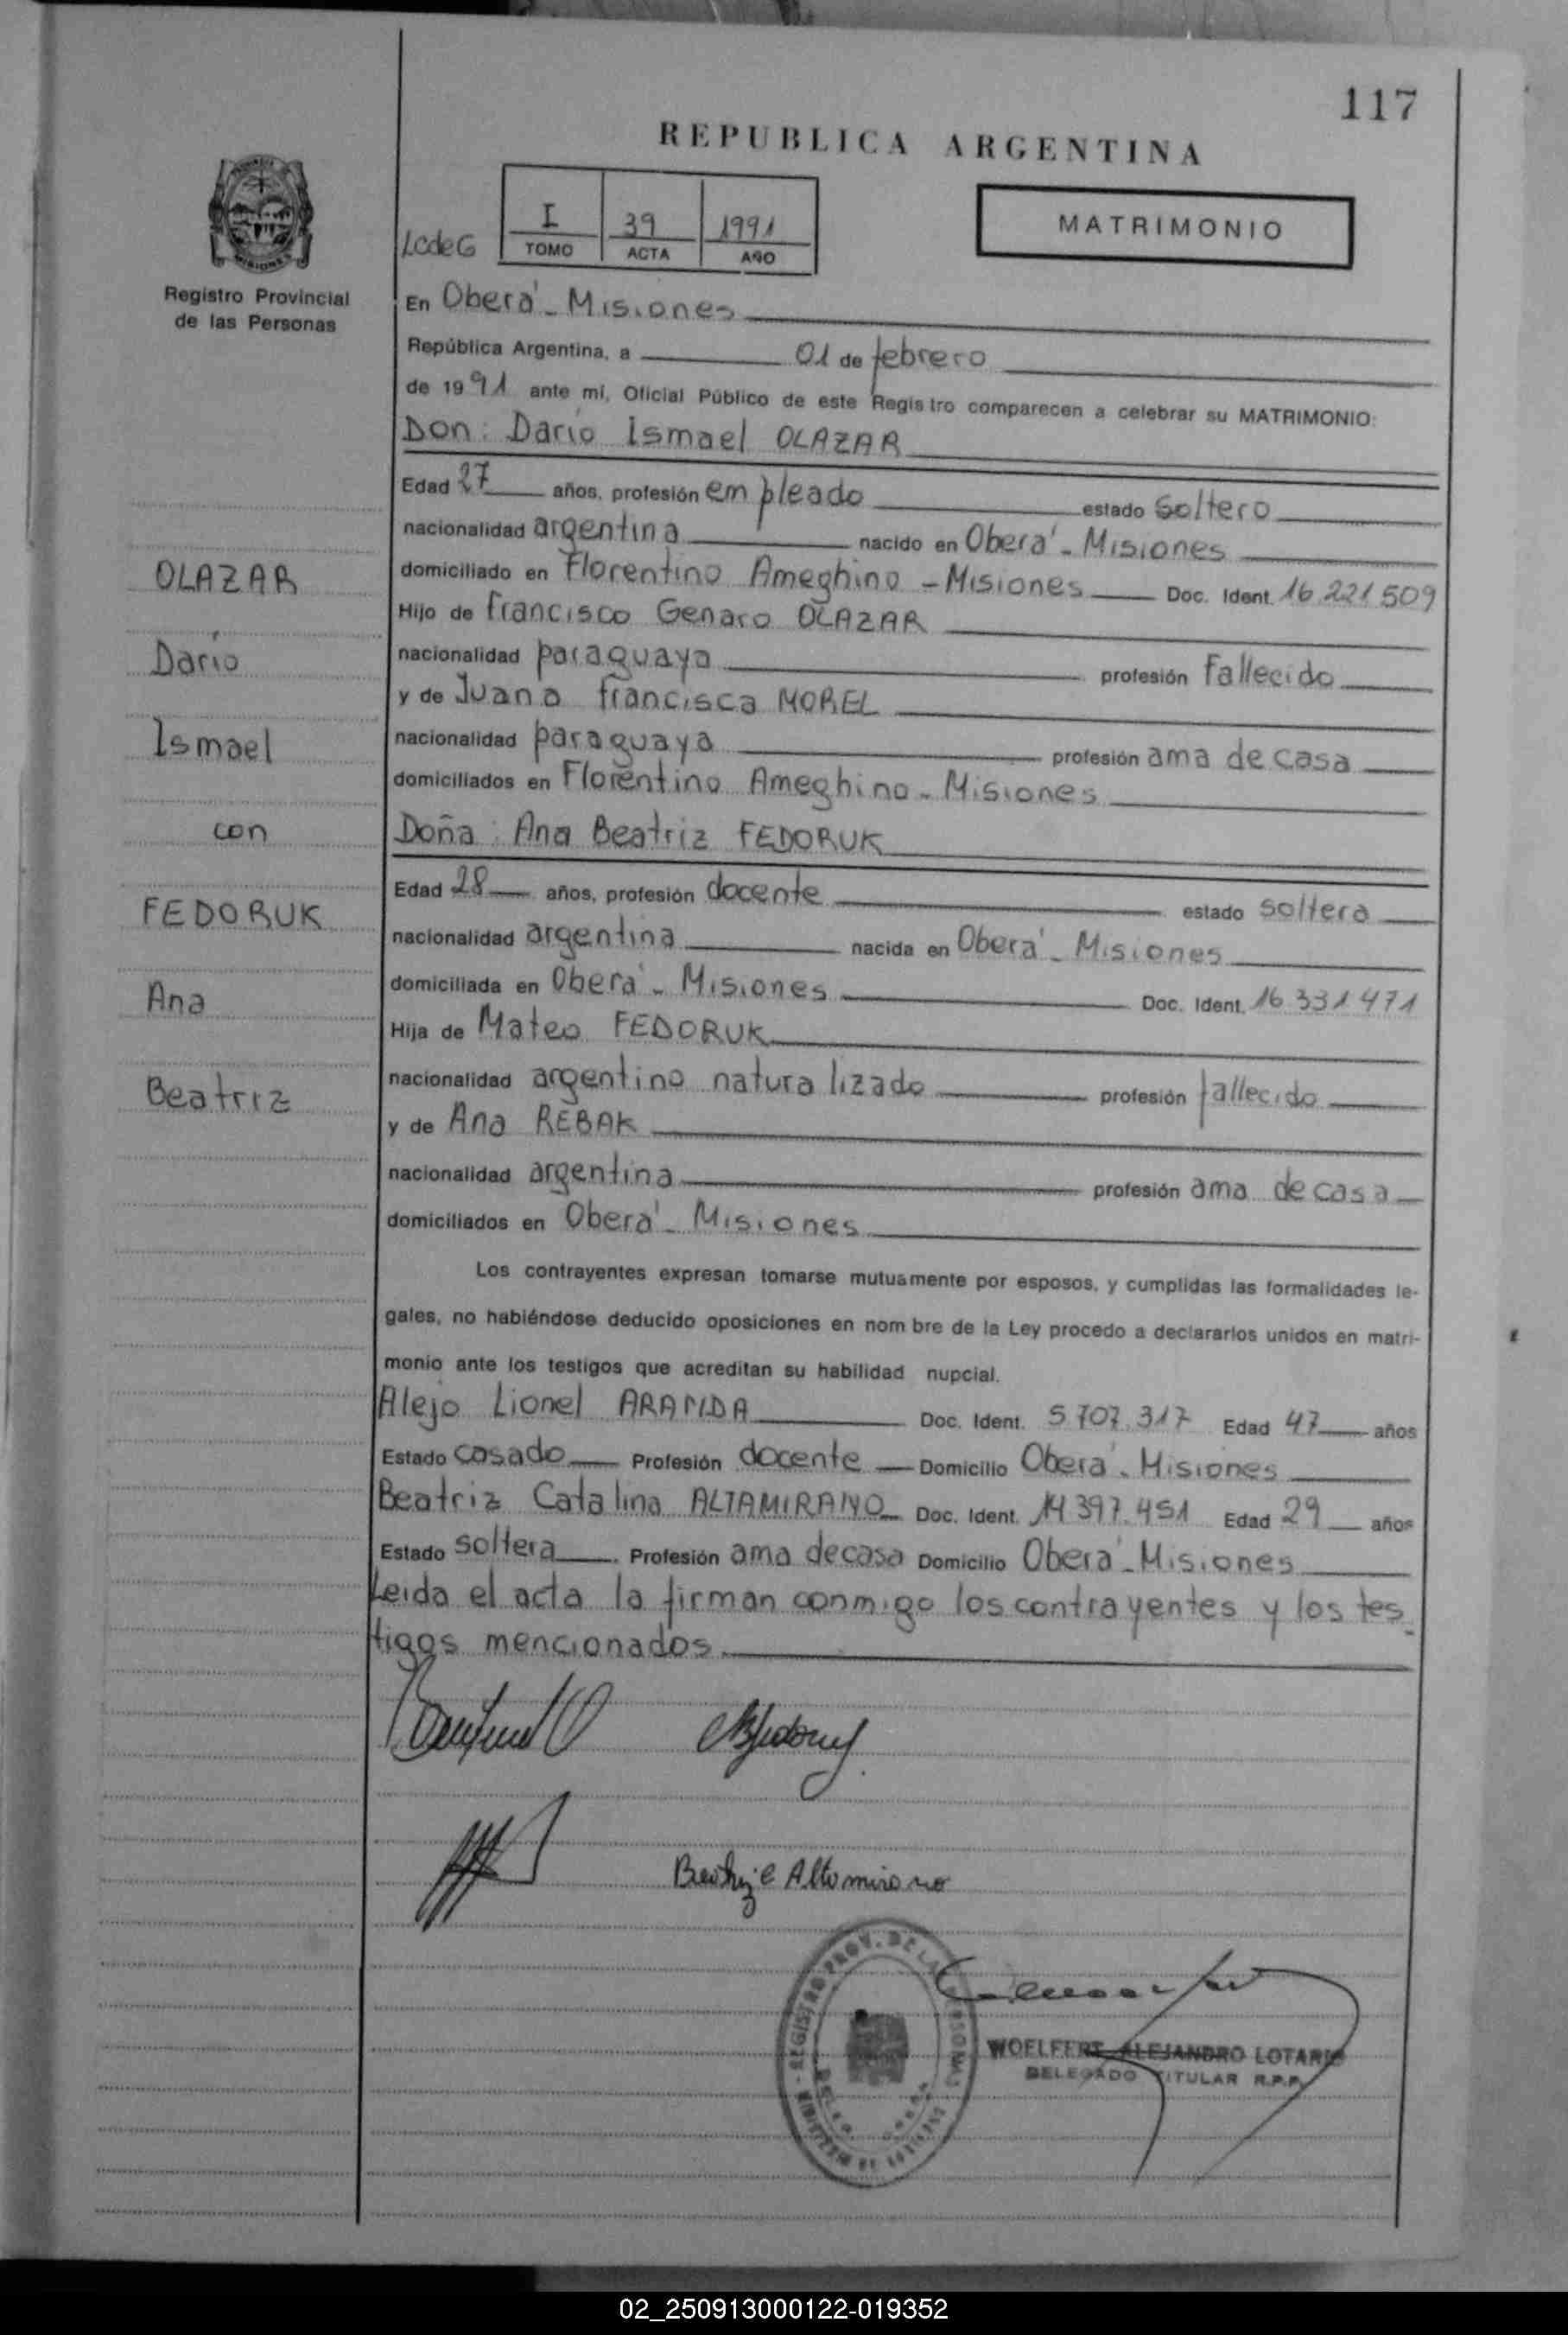 117
REPUBLICA ARGENTINA
MATRIMONIO
LcdeG
I 39 1991
TOMO ACTA AÑO
MISIONES
Registro Provincial
de las Personas
OLAZAR
Dario
Ismael
con
FEDORUK
Ana
Beatriz
En Oberá - Misiones
República Argentina, a 01 de febrero
de 1991 ante mí, Oficial Público de este Registro comparecen a celebrar su MATRIMONIO:
Don: Dario Ismael OLAZAR
Edad 27 años, profesión empleado estado soltero
nacionalidad argentina nacido en Oberá - Misiones
domiciliado en Florentino Ameghino - Misiones Doc. Ident. 16.221.509
Hijo de Francisco Genaro OLAZAR
nacionalidad paraguaya profesión fallecido
y de Juana Francisca MOREL
nacionalidad paraguaya profesión ama de casa
domiciliados en Florentino Ameghino - Misiones
Doña: Ana Beatriz FEDORUK
Edad 28 años, profesión docente estado soltera
nacionalidad argentina nacida en Oberá - Misiones
domiciliada en Oberá - Misiones Doc. Ident. 16.331.471
Hija de Mateo FEDORUK
nacionalidad argentino naturalizado profesión fallecido
y de Ana REBAK
nacionalidad argentina profesión ama de casa
domiciliados en Oberá - Misiones
Los contrayentes expresan tomarse mutuamente por esposos, y cumplidas las formalidades le-
gales, no habiéndose deducido oposiciones en nombre de la Ley procedo a declararlos unidos en matri-
monio ante los testigos que acreditan su habilidad nupcial.
Alejo Lionel ARANDA Doc. Ident. 5.707.317 Edad 47 años
Estado casado Profesión docente Domicilio Oberá - Misiones
Beatriz Catalina ALTAMIRANO Doc. Ident. 14.397.451 Edad 29 años
Estado soltera Profesión ama de casa Domicilio Oberá - Misiones
Leida el acta la firman conmigo los contrayentes y los tes-
tigos mencionados.
Beatriz C Altamirano
REGISTRO PROV. DE LAS PERSONAS
WOELFERT ALEJANDRO LOTARIO
DELEGADO TITULAR R.P.P.
02_250913000122-019352